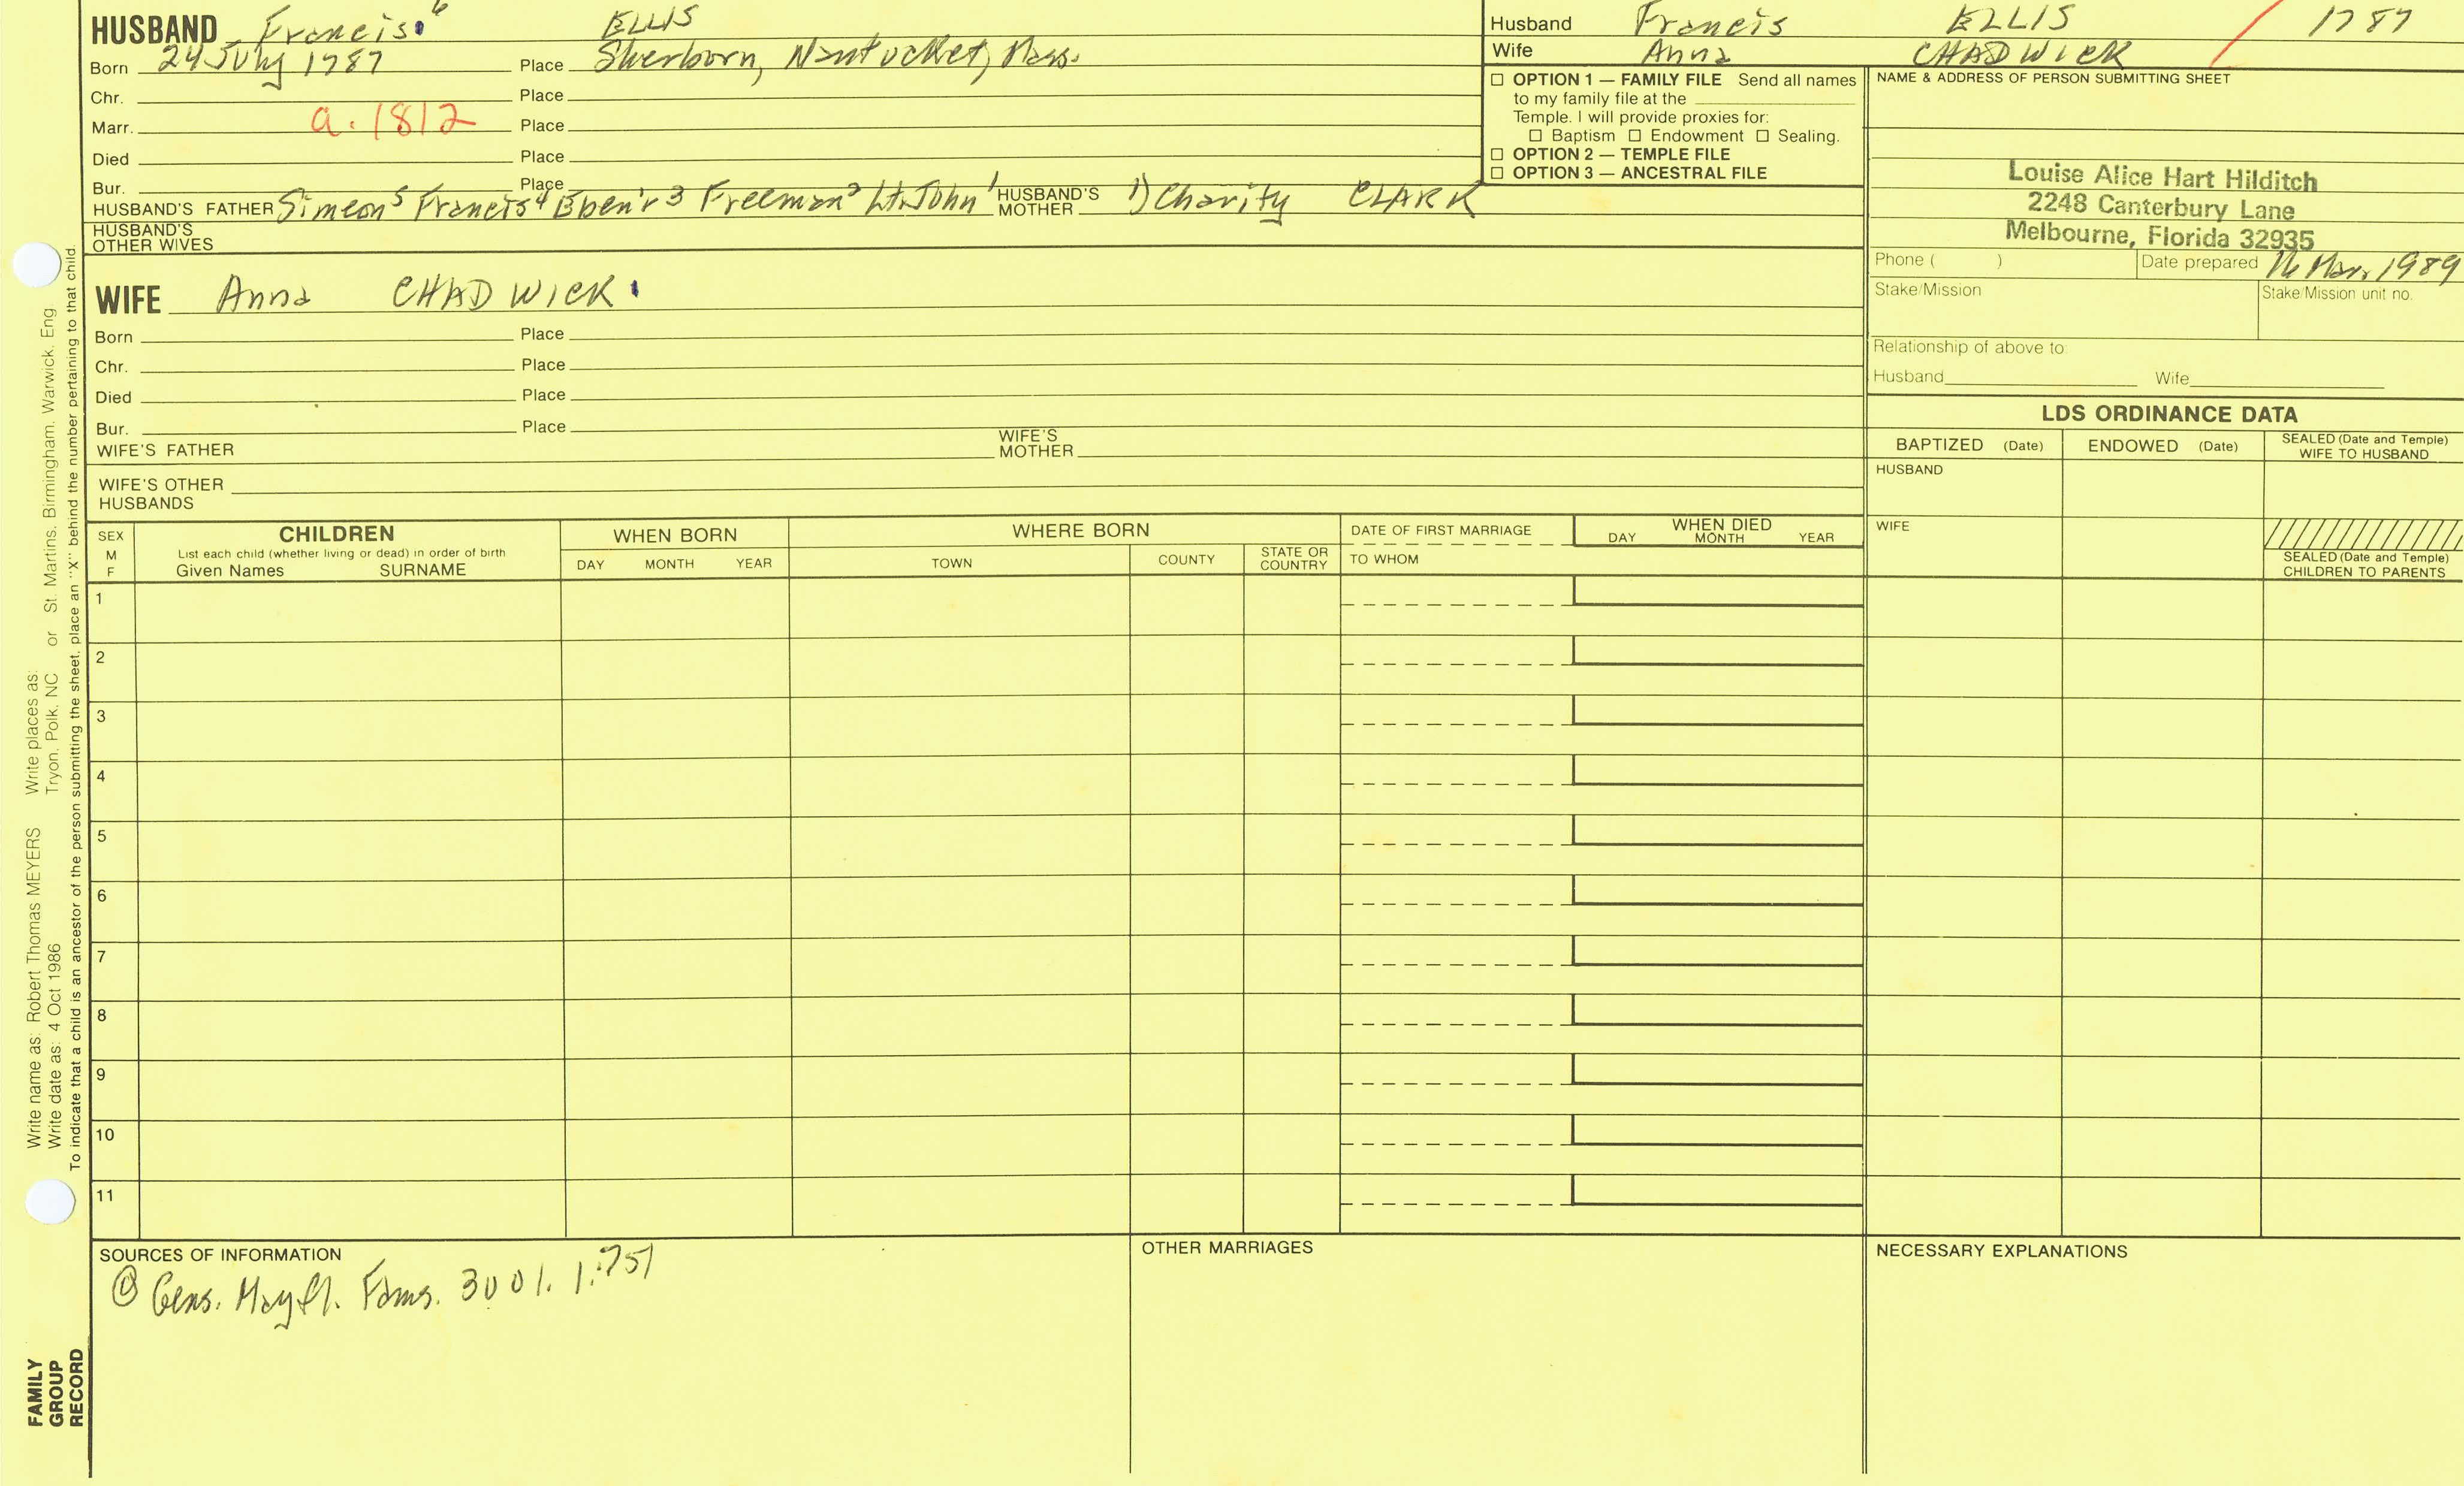 HUSBAND Francis⁶ ELLIS
Born 24 July 1787 Place Sherborn, Nantucket, Mass.
Chr. Place
Marr. a. 1812 Place
Died Place
Bur. Place
HUSBAND'S FATHER Simeon⁵ Francis⁴ Eben'r³ Freeman² Lt. John¹ HUSBAND'S MOTHER 1) Charity CLARK
HUSBAND'S OTHER WIVES
Husband Francis ELLIS / 1787
Wife Anna CHADWICK
☐ OPTION 1 — FAMILY FILE Send all names
to my family file at the
Temple. I will provide proxies for:
☐ Baptism ☐ Endowment ☐ Sealing.
☐ OPTION 2 — TEMPLE FILE
☐ OPTION 3 — ANCESTRAL FILE
NAME & ADDRESS OF PERSON SUBMITTING SHEET
Louise Alice Hart Hilditch
2248 Canterbury Lane
Melbourne, Florida 32935
Phone ( ) Date prepared Mar. 1989
Stake/Mission Stake/Mission unit no.
Relationship of above to:
Husband Wife
WIFE Anna CHADWICK
Born Place
Chr. Place
Died Place
Bur. Place
WIFE'S FATHER WIFE'S MOTHER
WIFE'S OTHER
HUSBANDS
LDS ORDINANCE DATA
BAPTIZED (Date) ENDOWED (Date) SEALED (Date and Temple)
WIFE TO HUSBAND
HUSBAND
WIFE
SEALED (Date and Temple)
CHILDREN TO PARENTS
SEX
M
F
CHILDREN
List each child (whether living or dead) in order of birth
Given Names SURNAME
WHEN BORN
DAY MONTH YEAR
WHERE BORN
TOWN COUNTY STATE OR COUNTRY
DATE OF FIRST MARRIAGE
TO WHOM
WHEN DIED
DAY MONTH YEAR
1
2
3
4
5
6
7
8
9
10
11
SOURCES OF INFORMATION
Gens. Mayfl. Fams. 3001. 1:751
OTHER MARRIAGES
NECESSARY EXPLANATIONS
Write name as: Robert Thomas MEYERS Write places as:
Write date as: 4 Oct 1986 Tryon, Polk, NC or St. Martins, Birmingham, Warwick, Eng.
To indicate that a child is an ancestor of the person submitting the sheet, place an "X" behind the number pertaining to that child.
FAMILY
GROUP
RECORD